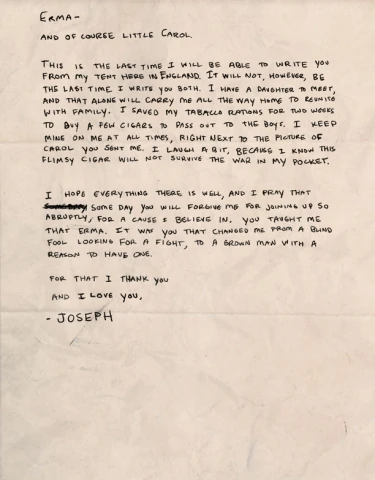 ERMA-
AND OF COURSE LITTLE CAROL.
THIS IS THE LAST TIME I WILL BE ABLE TO WRITE YOU
FROM MY TENT HERE IN ENGLAND. IT WILL NOT, HOWEVER, BE
THE LAST TIME I WRITE YOU BOTH. I HAVE A DAUGHTER TO MEET,
AND THAT ALONE WILL CARRY ME ALL THE WAY HOME TO REUNITE
WITH FAMILY. I SAVED MY TABACCO RATIONS FOR TWO WEEKS
TO BUY A FEW CIGARS TO PASS OUT TO THE BOYS. I KEEP
MINE ON ME AT ALL TIMES, RIGHT NEXT TO THE PICTURE OF
CAROL YOU SENT ME. I LAUGH A BIT, BECAUSE I KNOW THIS
FLIMSY CIGAR WILL NOT SURVIVE THE WAR IN MY POCKET.
I HOPE EVERYTHING THERE IS WELL, AND I PRAY THAT
SOME DAY YOU WILL FORGIVE ME FOR JOINING UP SO
ABRUPTLY, FOR A CAUSE I BELIEVE IN. YOU TAUGHT ME
THAT ERMA. IT WAS YOU THAT CHANGED ME FROM A BLIND
FOOL LOOKING FOR A FIGHT, TO A GROWN MAN WITH A
REASON TO HAVE ONE.
FOR THAT I THANK YOU
AND I LOVE YOU,
- JOSEPH